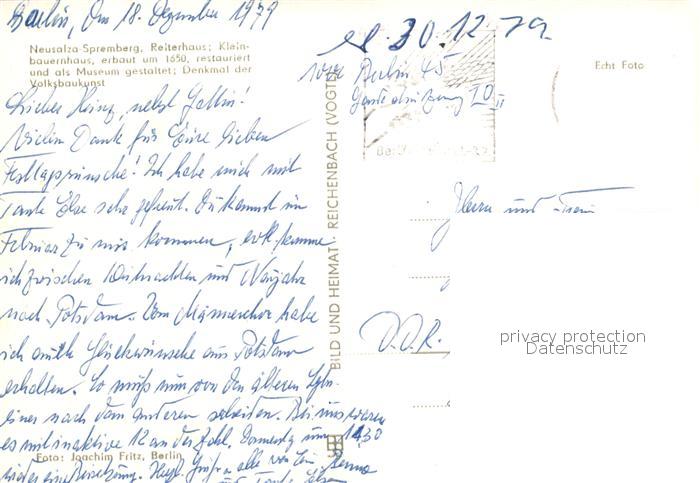 Berlin, den 18. Dezember 1979
Neusalza-Spremberg, Reiterhaus; Klein-
bauernhaus, erbaut um 1650, restauriert
und als Museum gestaltet; Denkmal der
Volksbaukunst
Lieber Heinz, nebst Gattin!
Vielen Dank für Eure lieben
Festtagswünsche! Ich habe mich mit
Tante Else sehr gefreut. Du kannst im
Februar zu mir kommen, evtl. komme
ich zwischen Weihnachten und Neujahr
nach Potsdam. Vom Männerchor habe
ich auch Glückwünsche aus Potsdam
erhalten. So muß nun von den älteren
einer nach dem anderen scheiden. Bei uns waren
es mit inaktive 12 an der Zahl. Donnerstag um 14,30
Foto: Joachim Fritz, Berlin
wieder eine Beisetzung. Herzl. Grüße alle von
und Tante Else
BILD UND HEIMAT · REICHENBACH (VOGTL)
30.12.79
Berlin 45
Echt Foto
Herrn und Frau
D.D.R.
privacy protection
Datenschutz